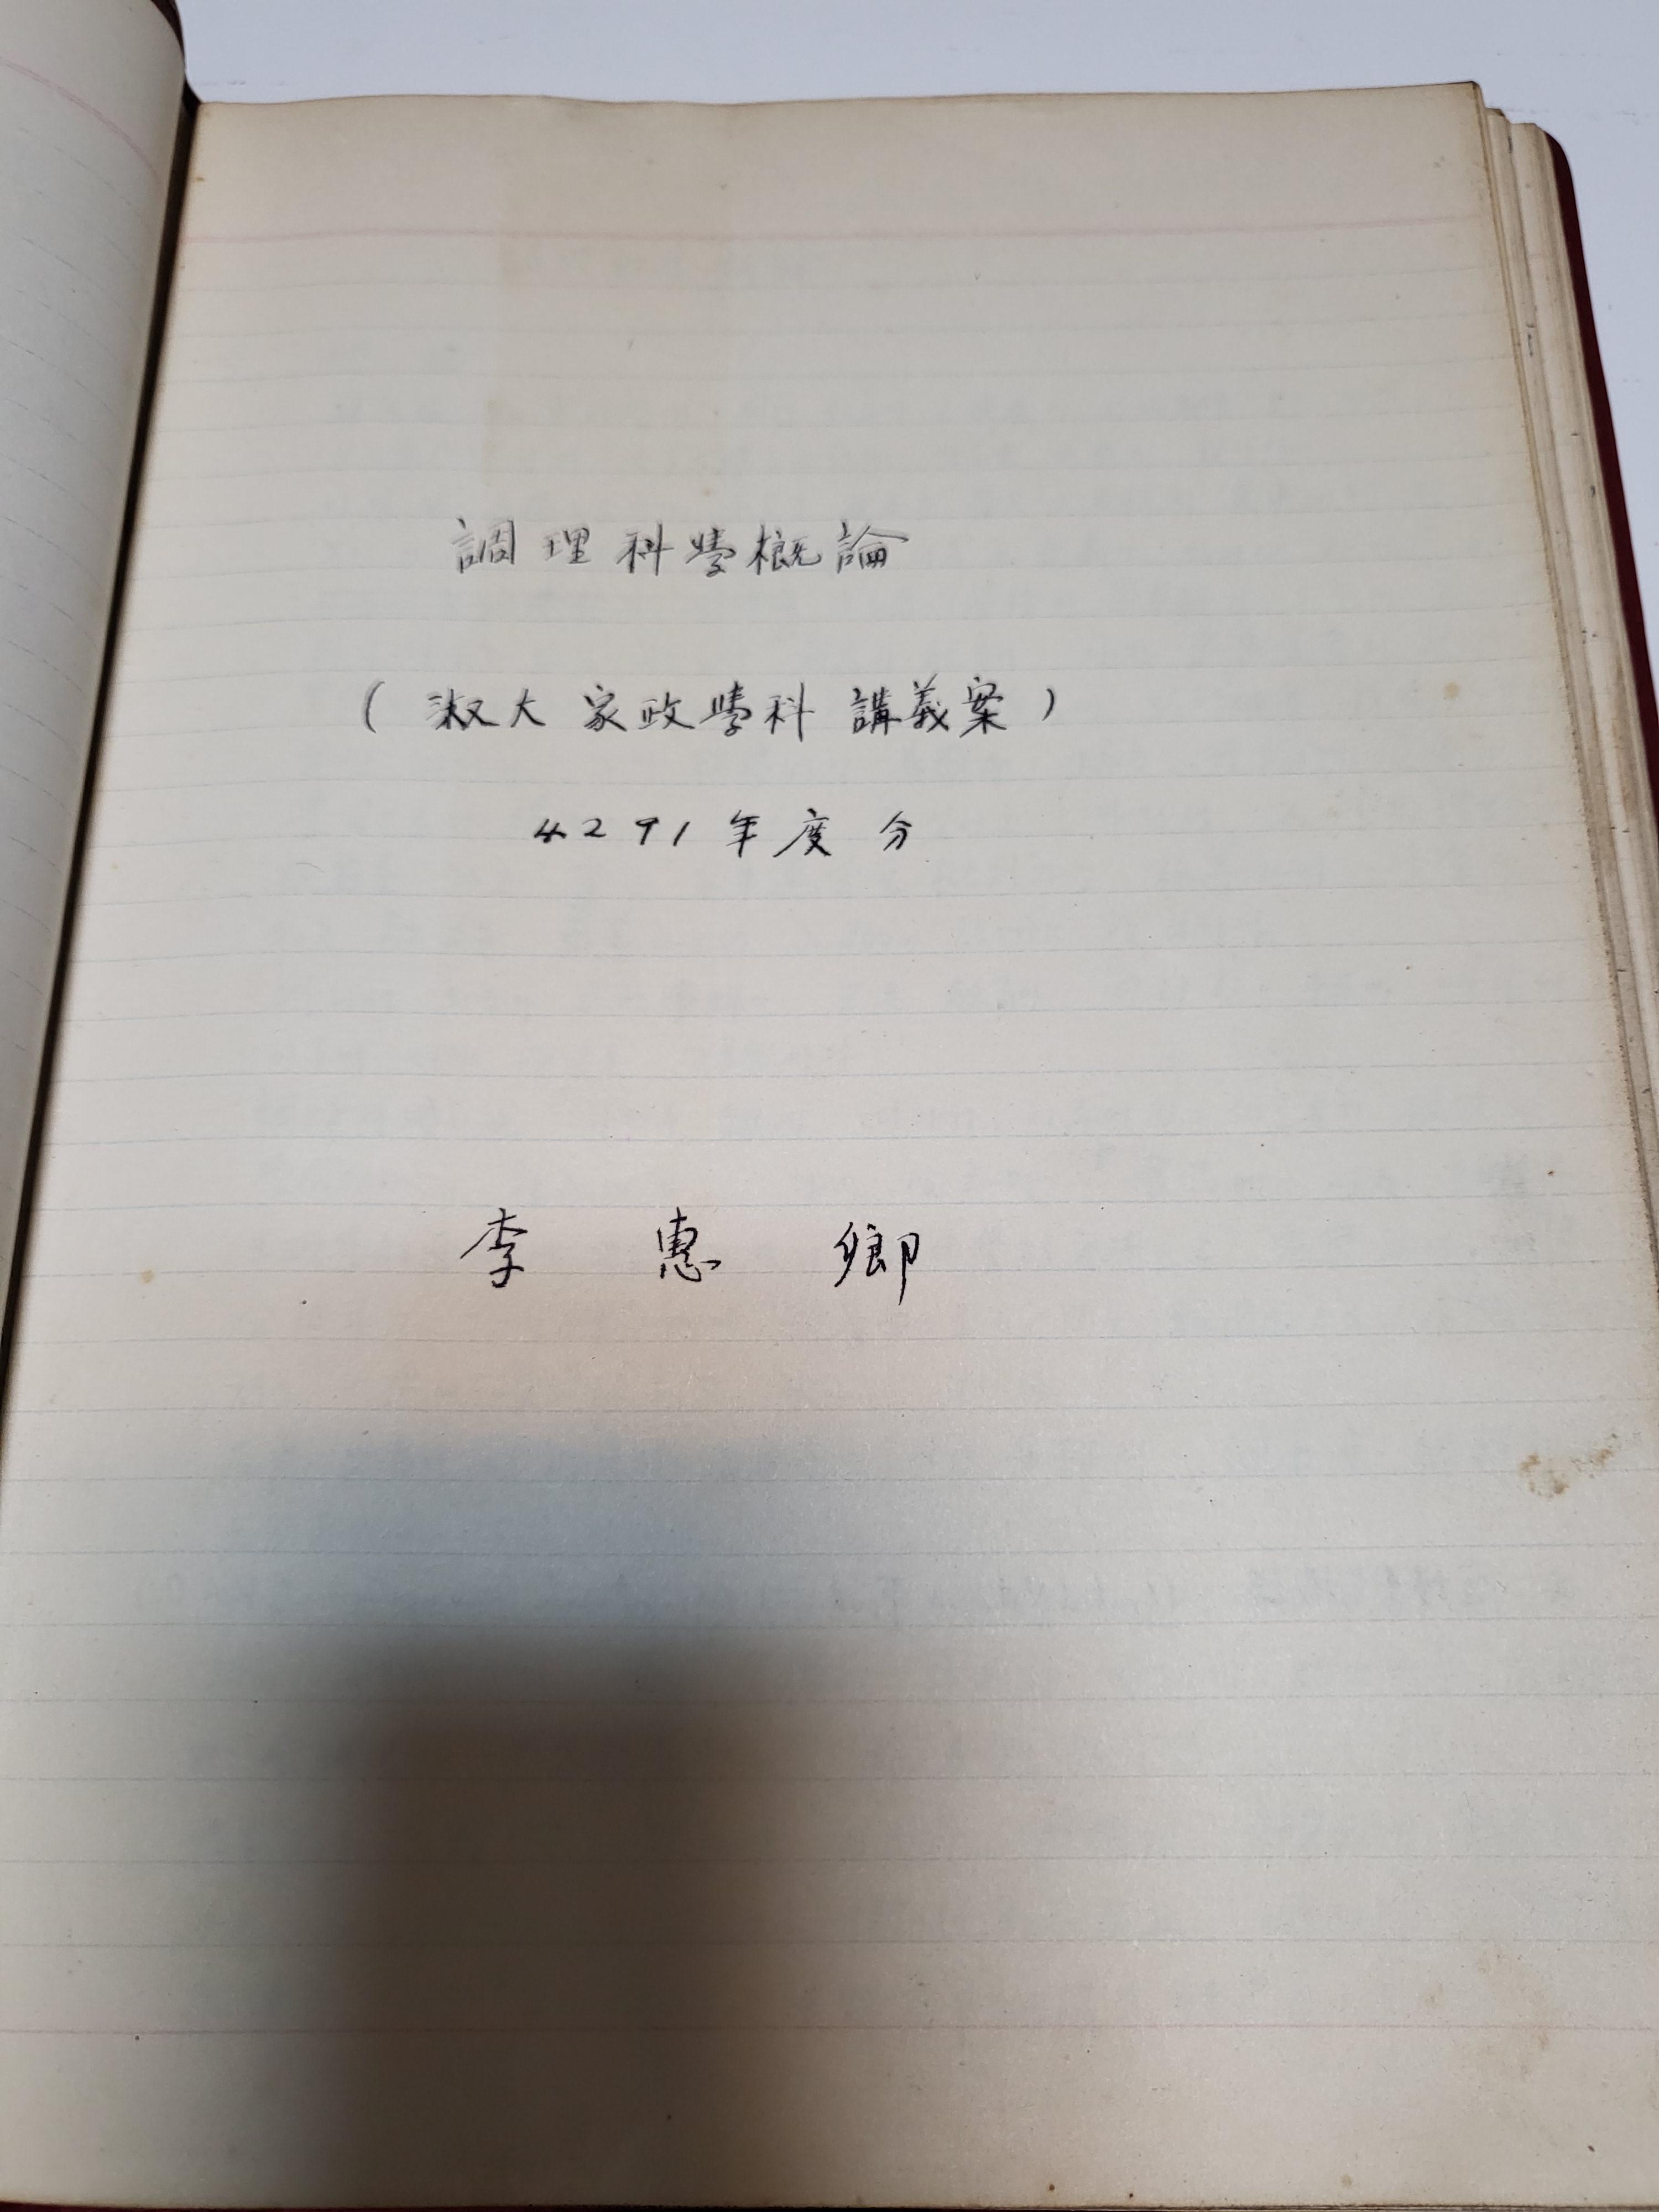 調理科學概論
(淑大 家政學科 講義案)
4291年度分
李惠卿